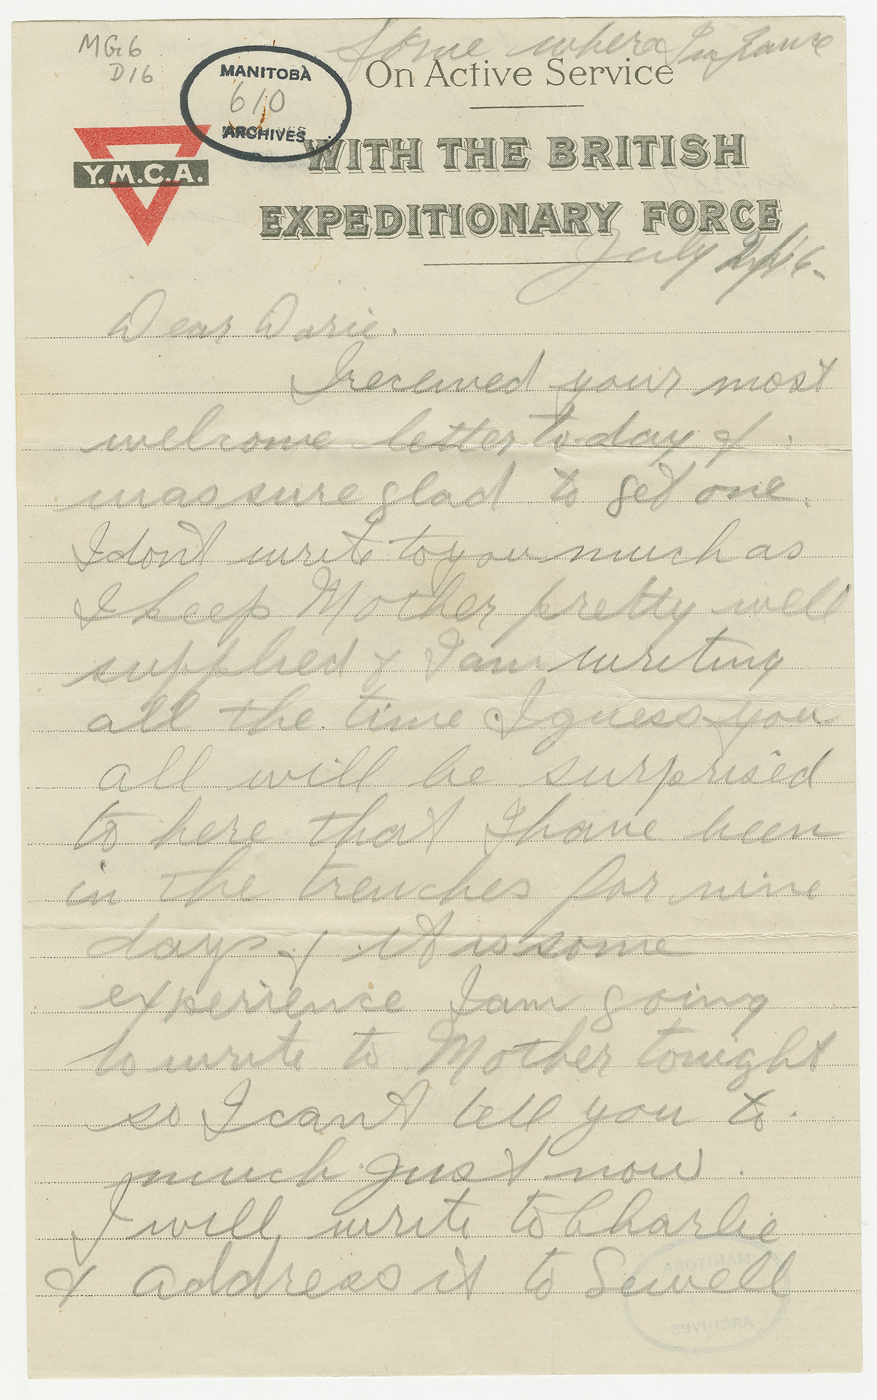 MG6
D16
MANITOBA
610
ARCHIVES
Some where in France
On Active Service
WITH THE BRITISH
Y.M.C.A.
EXPEDITIONARY FORCE
July
Dear Dorie.
I received your most
welcome letter to-day &
was sure glad to get one.
I dont write to you much as
I keep Mother pretty well
supplied & I am writing
all the time I guess you
all will be surprised
to here that I have been
in the trenches for nine
days & it is some
experience I am going
to write to Mother tonight
so I cant tell you to
much just now.
I will write to Charlie
& address it to Sewell
MANITOBA
ARCHIVES